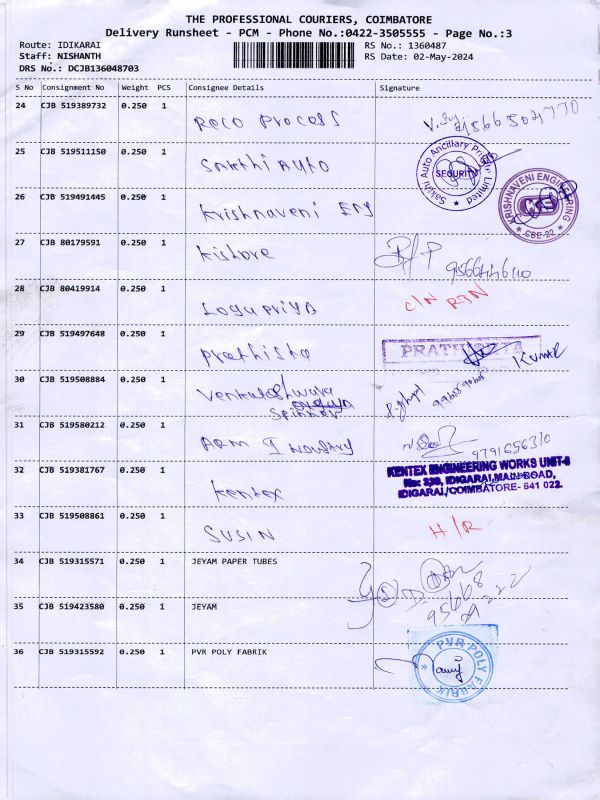 THE PROFESSIONAL COURIERS, COIMBATORE
Delivery Runsheet - PCM - Phone No.:0422-3505555 - Page No.:3
Route: IDIKARAI RS No.: 1360487
Staff: NISHANTH RS Date: 02-May-2024
DRS No.: DCJB136048703
S No Consignment No Weight PCS Consignee Details Signature
24 CJB 519389732 0.250 1
Reco Process
25 CJB 519511150 0.250 1
Sakthi Auto
Sakthi Auto Ancillary Private Limited
SECURITY
26 CJB 519491445 0.250 1
Krishnaveni Eng
KRISHNAVENI ENGINEERING
CBE-22
27 CJB 80179591 0.250 1
Kishore
28 CJB 80419914 0.250 1
Logupriya
C/N RTN
29 CJB 519497648 0.250 1
Prathista
Kumar
30 CJB 519508884 0.250 1
31 CJB 519580212 0.250 1
ARM Industry
9791656310
32 CJB 519381767 0.250 1
Kentex
KENTEX ENGINEERING WORKS UNIT-II
IDIGARAI, MAIN ROAD,
IDIGARAI, COIMBATORE- 641 022.
33 CJB 519508861 0.250 1
SUSIN
H/R
34 CJB 519315571 0.250 1 JEYAM PAPER TUBES
35 CJB 519423580 0.250 1 JEYAM
36 CJB 519315592 0.250 1 PVR POLY FABRIK
PVR POLY FABRIK